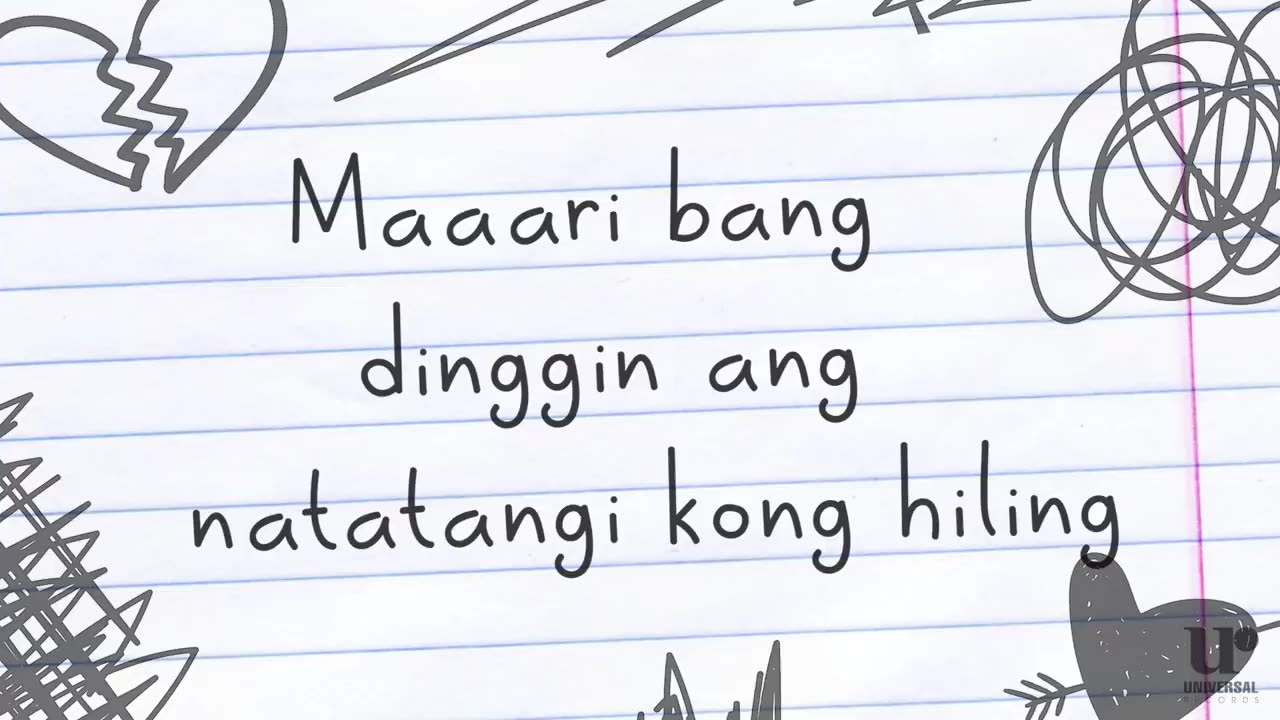 Maaari bang
dinggin ang
natatangi kong hiling
ur
UNIVERSAL
RECORDS